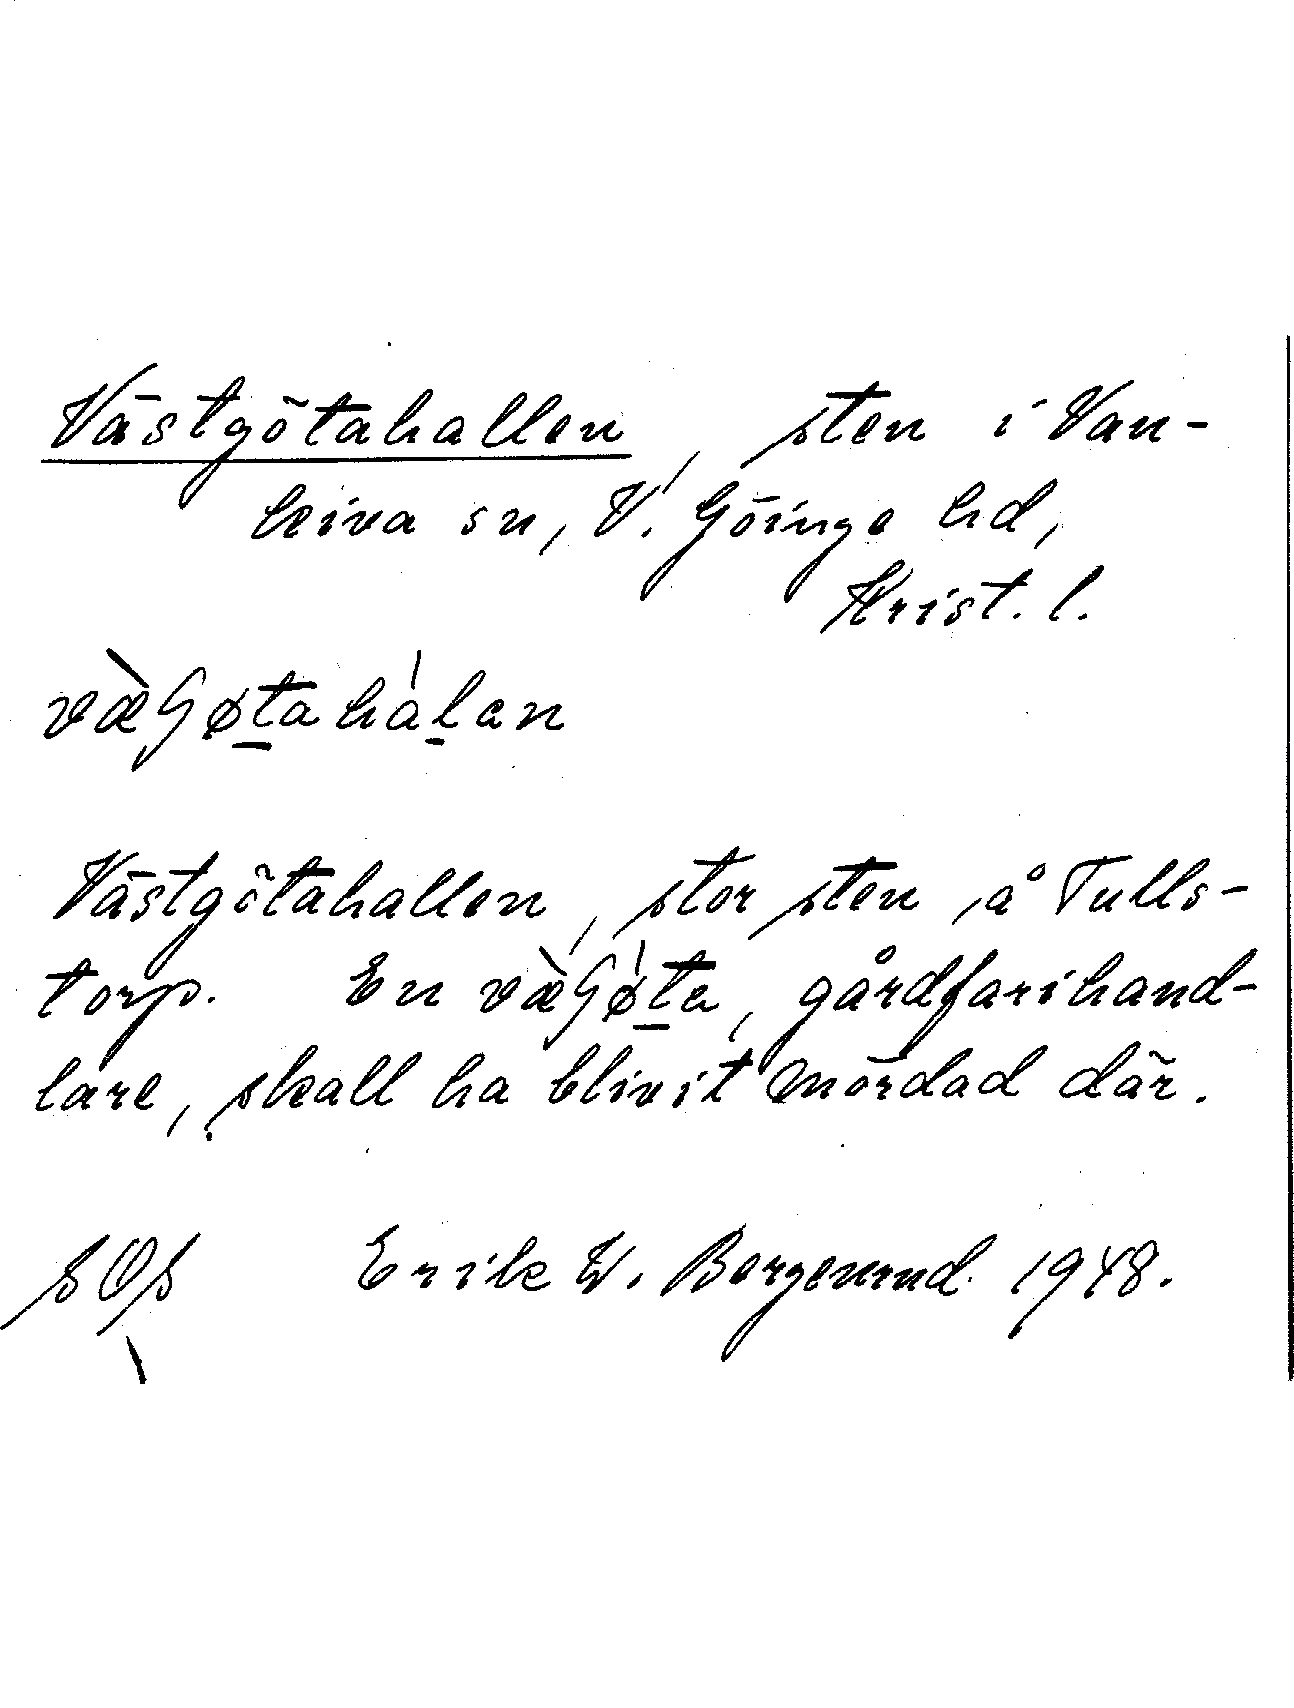 Västgötahallen, sten i Van-
keiva sn, V. Göinge hd,
Krist. l.
Västgötahallen, stor sten å Tulls-
torp. En gårdfarihand-
lare, skall ha blivit mördad där.
SOS Erik W. 1948.